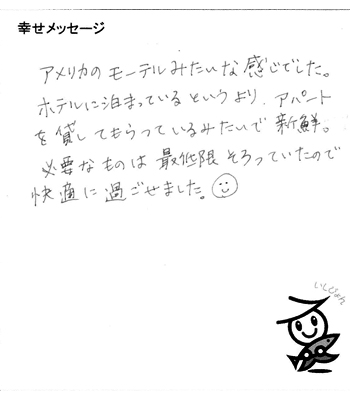 幸せメッセージ
アメリカのモーテルみたいな感じでした。
ホテルに泊まっているというより、アパート
を貸してもらっているみたいで新鮮。
必要なものは最低限そろっていたので
快適に過ごせました。